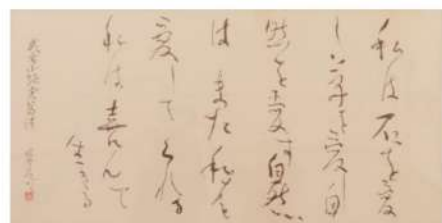 私は石を愛
し草を愛し自
然を愛す自然
はまた私を
愛してくれる
私は喜んで
生きる
武者小路実篤詩